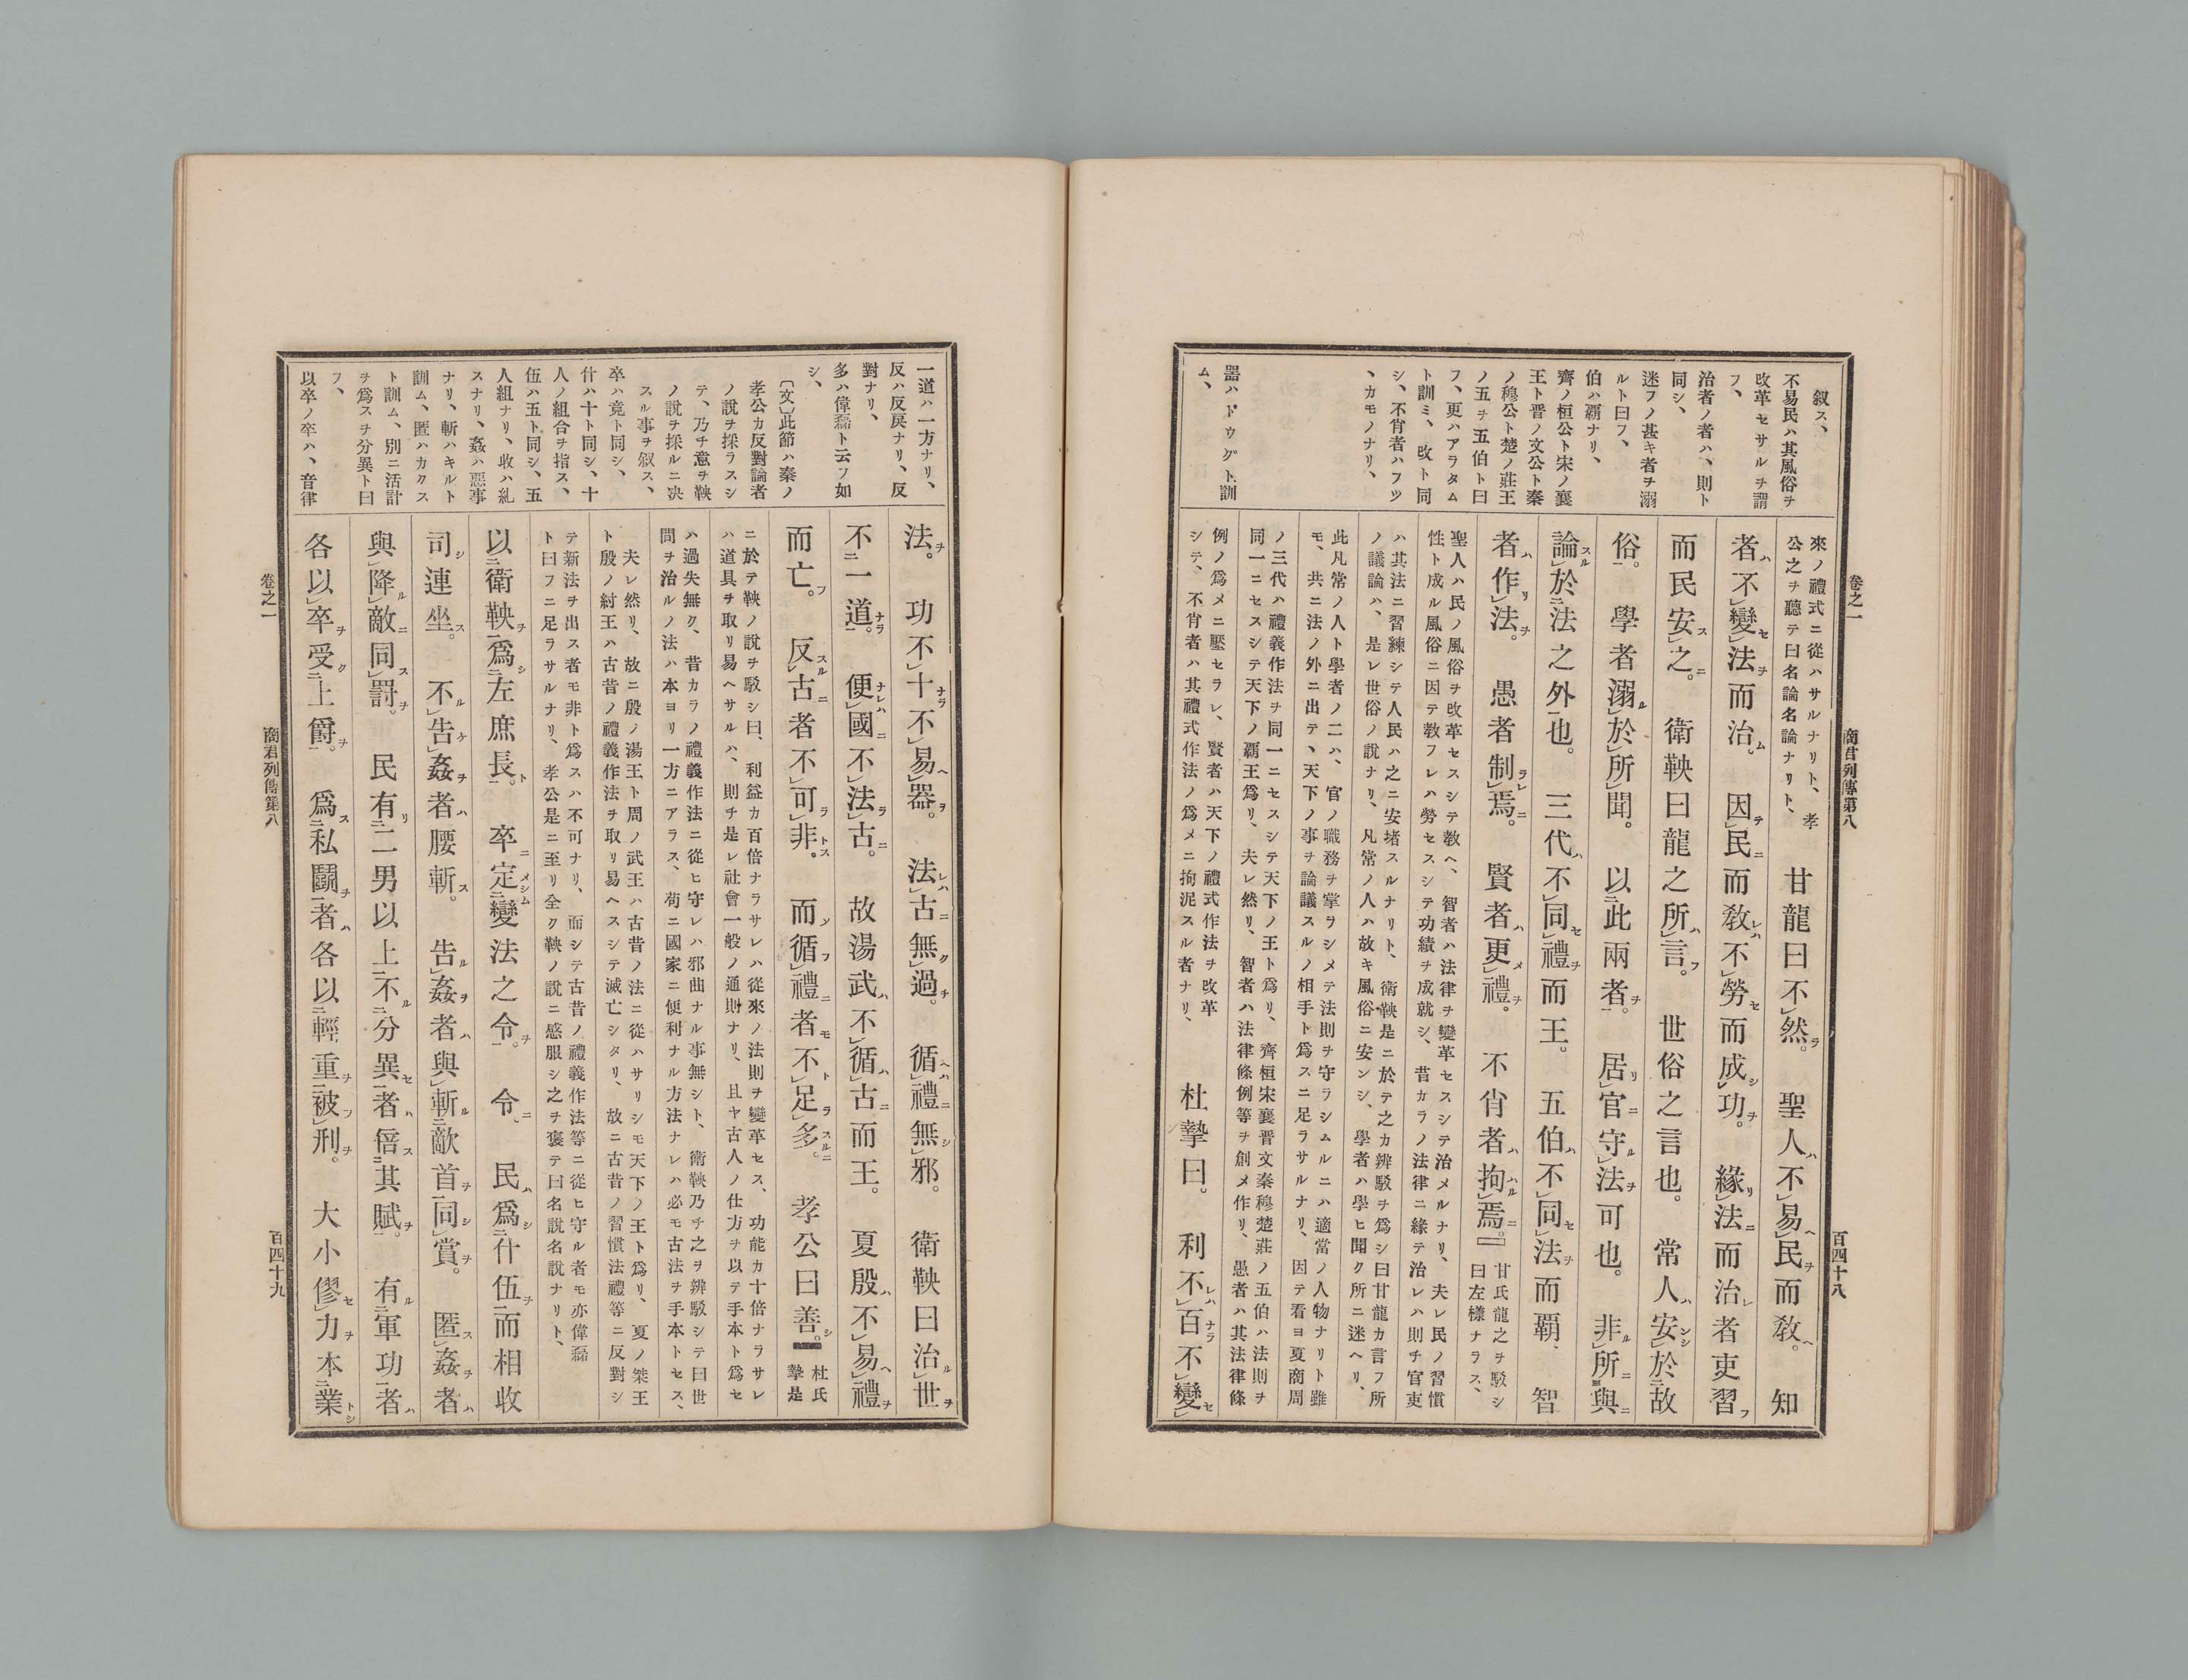 卷之一 商君列傳第八 百四十八
叙ス、
不易民ハ其風俗ヲ
改革セサルヲ謂
フ、
治者ノ者ハ、則ト
同シ、
迷フノ甚キ者ヲ溺
ルト曰フ、
伯ハ覇ナリ、
齊ノ桓公ト宋ノ襄
王ト晋ノ文公ト秦
ノ穆公ト楚ノ莊王
ノ五ヲ五伯ト曰
フ、更ハアラタム
ト訓ミ、改ト同
シ、不肖者ハフツ
、カモノナリ、
器ハドウグト訓
ム、
來ノ禮式ニ從ハサルナリト、孝
公之ヲ聽テ曰名論名論ナリト、
甘龍曰不㆑然ラ。聖人ハ不㆑易ヘ㆑民ヲ而敎ヘ。知
者ハ不㆑變セ㆑法ヲ而治ム。因テ㆑民ニ而敎レハ不㆑勞セ而成シ㆑功ヲ。緣リ㆑法ニ而治レ者吏習フ
而民安ス㆑之ニ。衛鞅曰龍之所㆑言フハ。世俗之言也。常人ハ安ンシ㆓於故
俗㆒。學者溺ル㆑於㆑所㆑聞。以㆓此兩者ヲ㆒。居リ㆑官ニ守ル㆑法ヲ可也。非ル㆑所ニ㆓與ニ
論スル㆓於法之外㆒也。三代ハ不㆑同セ㆑禮ヲ而王。五伯ハ不㆑同セ㆑法ヲ而覇、智
者ハ作リ㆑法ヲ。愚者制ラレ㆑焉ニ。賢者ハ更メ㆑禮ヲ。不肖者ハ拘ハル㆑焉ニ。
甘氏龍之ヲ駁シ
曰左樣ナラス、
聖人ハ民ノ風俗ヲ改革セスシテ敎ヘ、智者ハ法律ヲ變革セスシテ治メルナリ、夫レ民ノ習慣
性ト成ル風俗ニ因テ敎フレハ勞セスシテ功績ヲ成就シ、昔カラノ法律ニ緣テ治レハ則チ官吏
ハ其法ニ習練シテ人民ハ之ニ安堵スルナリト、衛鞅是ニ於テ之カ辨駁ヲ爲シ曰甘龍カ言フ所
ノ議論ハ、是レ世俗ノ說ナリ、凡常ノ人ハ故キ風俗ニ安ンシ、學者ハ學ヒ聞ク所ニ迷ヘリ、
此凡常ノ人ト學者ノ二ハ、官ノ職務ヲ掌ラシメテ法則ヲ守ラシムルニハ適當ノ人物ナリト雖
モ、共ニ法ノ外ニ出テヽ天下ノ事ヲ論議スルノ相手ト爲スニ足ラサルナリ、因テ看ヨ夏商周
ノ三代ハ禮義作法ヲ同一ニセスシテ天下ノ王ト爲リ、齊桓宋襄晋文秦穆楚莊ノ五伯ハ法則ヲ
同一ニセスシテ天下ノ覇王爲リ、夫レ然リ、智者ハ法律條例等ヲ創メ作リ、愚者ハ其法律條
例ノ爲メニ壓セラレ、賢者ハ天下ノ禮式作法ヲ改革
シテ、不肖者ハ其禮式作法ノ爲メニ拘泥スル者ナリ、
杜摯曰。利不レハ㆑百ナラ不㆑變セ㆑
一道ハ一方ナリ、
反ハ反戾ナリ、反
對ナリ、
多ハ偉磊ト云フ如
シ、
〔文〕此節ハ秦ノ
孝公カ反對論者
ノ說ヲ採ラスシ
テ、乃チ意ヲ鞅
ノ說ヲ採ルニ决
スル事ヲ叙ス、
卒ハ竟ト同シ、
什ハ十ト同シ、十
人ノ組合ヲ指ス、
伍ハ五ト同シ、五
人組ナリ、收ハ糺
スナリ、姦ハ惡事
ナリ、斬ハキルト
訓ム、匿ハカカス
ト訓ム、別ニ活計
ヲ爲スヲ分異ト曰
フ、
以卒ノ卒ハ、音律
法ヲ。功不㆑十ナラ不㆑易ヘ㆑器ヲ。法レハ㆑古ニ無ク㆑過チ。循ヘハ㆑禮ニ無シ㆑邪。衛鞅曰治ル㆑世ヲ
不㆓一道ナラ㆒。便ナレハ㆑國ニ不㆑法ラ㆑古ニ。故湯武ハ不㆑循ハ㆑古ニ而王。夏殷ハ不㆑易ヘ㆑禮ヲ
而亡フ。反スル㆑古ニ者不㆑可ラ㆑非トス。而ソ循フ㆑禮ニ者モ不ト㆑足ラ㆑多スルニ。孝公曰善シ。
杜氏
摯是
ニ於テ鞅ノ說ヲ駁シ曰、利益カ百倍ナラサレハ從來ノ法則ヲ變革セス、功能カ十倍ナラサレ
ハ道具ヲ取リ易ヘサルハ、則チ是レ社會一般ノ通則ナリ、且ヤ古人ノ仕方ヲ以テ手本ト爲セ
ハ過失無ク、昔カラノ禮義作法ニ從ヒ守レハ邪曲ナル事無シト、衛鞅乃チ之ヲ辨駁シテ曰世
間ヲ治ルノ法ハ本ヨリ一方ニアラス、荀ニ國家ニ便利ナル方法ナレハ必モ古法ヲ手本トセス、
夫レ然リ、故ニ殷ノ湯王ト周ノ武王ハ古昔ノ法ニ從ハサリシモ天下ノ王ト爲リ、夏ノ桀王
ト殷ノ紂王ハ古昔ノ禮義作法ヲ取リ易ヘスシテ滅亡シタリ、故ニ古昔ノ習慣法禮等ニ反對シ
テ新法ヲ出ス者モ非ト爲スハ不可ナリ、而シテ古昔ノ禮義作法等ニ從ヒ守ル者モ亦偉磊
ト曰フニ足ラサルナリ、孝公是ニ至リ全ク鞅ノ說ニ感服シ之ヲ褒テ曰名說名說ナリト、
以㆓衛鞅ヲ㆒爲シ㆓左庶長ト㆒。卒ニ定メシム㆓變法之令ヲ㆒。令ニ、民ハ爲シ㆓什伍ヲ㆒而相收
司シ連坐ス。不ル㆑告ケ㆑姦ヲ者ハ腰斬ス。告ル㆑姦ヲ者ハ與㆑斬ル㆓敵首ヲ㆒同シ㆑賞ヲ。匿ス㆑姦ヲ者ハ
與㆑降ル㆑敵ニ同ス㆑罰ヲ。民有リ㆓二男以上㆒不ル㆓分異セ㆒者ハ倍ス㆓其賦ヲ㆒。有ル㆓軍功㆒者ハ
各以㆑卒ヲ受ク㆓上爵ヲ㆒。爲ス㆓私鬪ヲ㆒者ハ各以㆓輕重ヲ㆒被フ㆑刑ヲ。大小僇セ㆑力ヲ本㆓業トシ
卷之一 商君列傳第八 百四十九